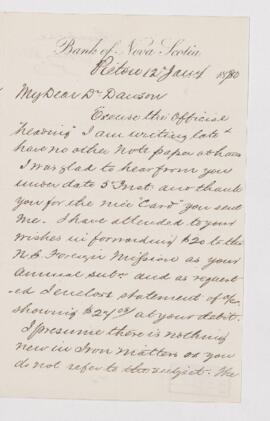 Bank of Nova Scotia
Pictou 12 Jany 1880
My Dear Dr Dawson
Excuse the Official
"heading" I am writing late &
have no other Note paper at hand
I was glad to hear from you
under date 5th Inst. and thank
you for the nice "Card" you sent
Me. I have attended to your
wishes in forwarding $20 to the
Foreign Mission as your
Annual subn. and as request-
ed I enclose statement of a/c
showing at your debit.
I presume there is nothing
new in Iron matters as you
do not refer to the subject. We